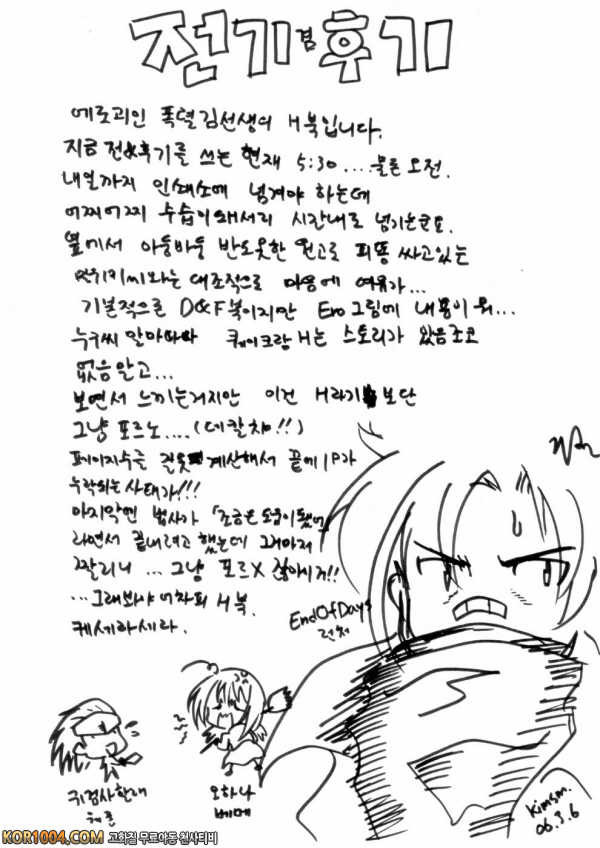 전기겸후기
에로괴인 폭렬김선생의 H북입니다.
지금 전&후기를 쓰는 현재 5:30....물론 오전.
내일까지 인쇄소에 넘겨야 하는데
어찌어찌 수습이돼서리 시간내로 넘기온군요.
옆에서 아둥바둥 반도못한 원고로 피똥 싸고있는
씨와는 대조적으로 마음에 여유가...
기본적으로 D&F북이지만 Ero그림에 내용이 뭐...
누구씨 말마따나 퀘이크랑 H는 스토리가 있음 조코
없음 말고...
보면서 느끼는거지만 이건 H라기 보단
그냥 포르노....(데칼챠!!)
페이지수를 잘못 계산해서 끝에 1P가
누락되는 사태가!!!
마지막엔 법사가 「조금은 도움이 됐어
라면서 끝내려고 했는데 그마저
짤리니 ... 그냥 포르X 잖아시져!!
...그래봐야 어차피 H북.
케세라세라.
EndOfDays
런처
귀검사한테
오하나
베메
Kimsm.
06.3.6
KOR1004.COM 고화질 무료야동 천사티비